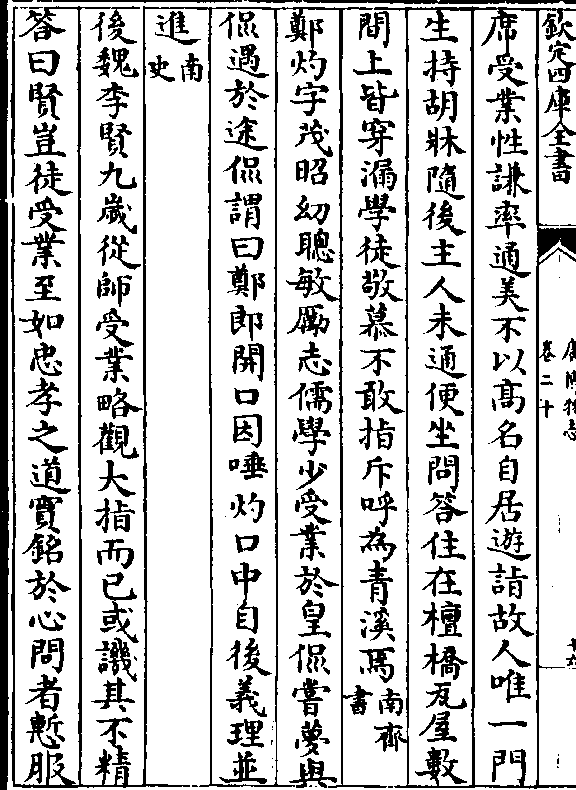 欽定四庫全書
卷二十
席受業性謙率通美不以髙名自居遊詣故人唯一門
生持胡牀隨後主人未通便坐問答住在檀橋瓦屋數
間上皆穿漏學徒敬慕不敢指斥呼為青溪焉南齊書
鄭灼字茂昭幼聰敏厲志儒學少受業於皇侃嘗夢與
侃遇於途侃謂曰鄭郎開口因唾灼口中自後義理並
進南史
後魏李賢九歲從師受業略觀大指而已或譏其不精
答曰賢豈徒受業至如忠孝之道實銘於心問者慙服